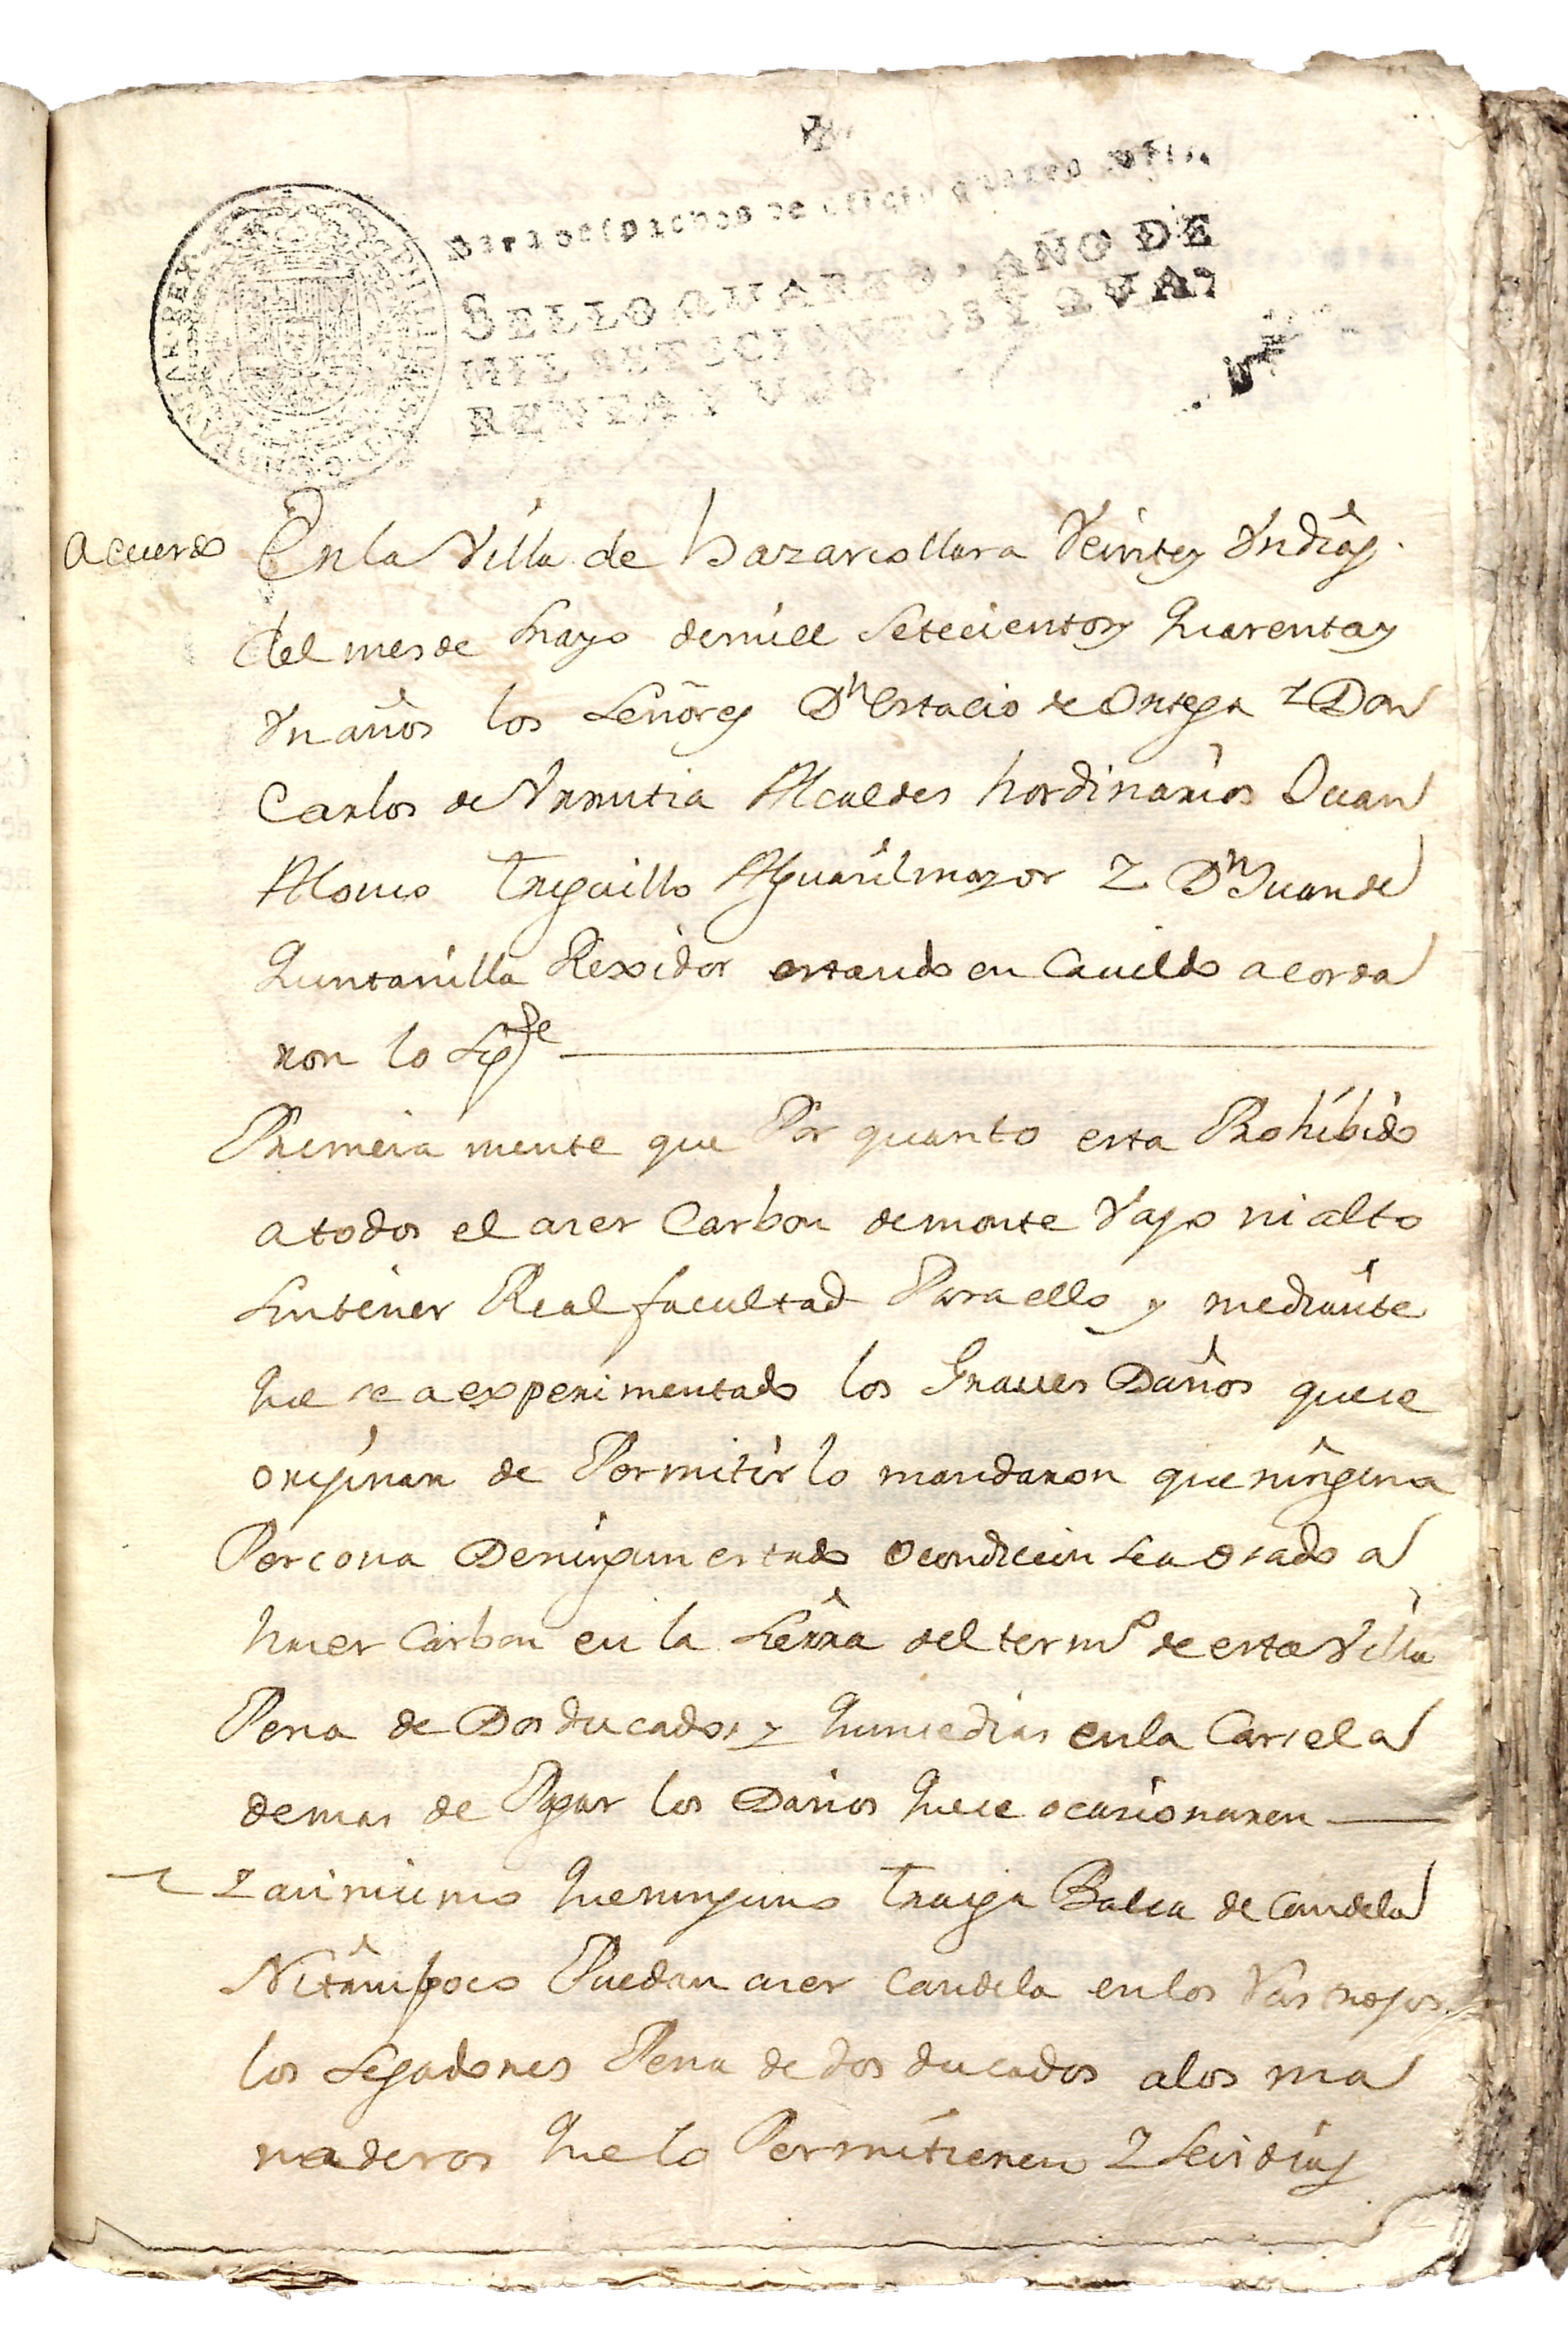 Para despachos de oficio quatro mrs.
SELLO QUARTO, AÑO DE
MIL SETECIENTOS Y QVA-
RENTA Y UNO.
acuerdo
En la Villa de hazarcollara Veintey Un dias
del mes de Mayo demill Setecientos quarentay
Un años los Señores Dn Estacio de Ortega Z Don
Carlos de Vrrutia Alcaldes hordinarios Juan
Alonso Trigillo Alguasilmayor Z Dn Juan de
quintanilla Rexidor estando en Cauildo acorda
ron lo Sigte
Primera mente que Por quanto esta Prohibido
a todos el acer Carbon de monte Vajo ni alto
Sintener Real facultad Para ello y mediante
que se a experimentado los Graues Daños quese
orijinan de Permitirlo mandaron que ninguna
Percona De ningun estado o condicion sea osado a
hacer Carbon en la Sierra del termo de esta Villa
Pena de Dos ducados y quince dias en la Carsel a
demas de Pagar los Daños quese ocacionaren
Z acimismo que ninguno Traiga Balsa de Candela
Ni tampoco Puedan acer candela en los Vastrojos
los Segadores Pena de dos ducados a los ma
naderos que lo Permitieren Z Seis dias